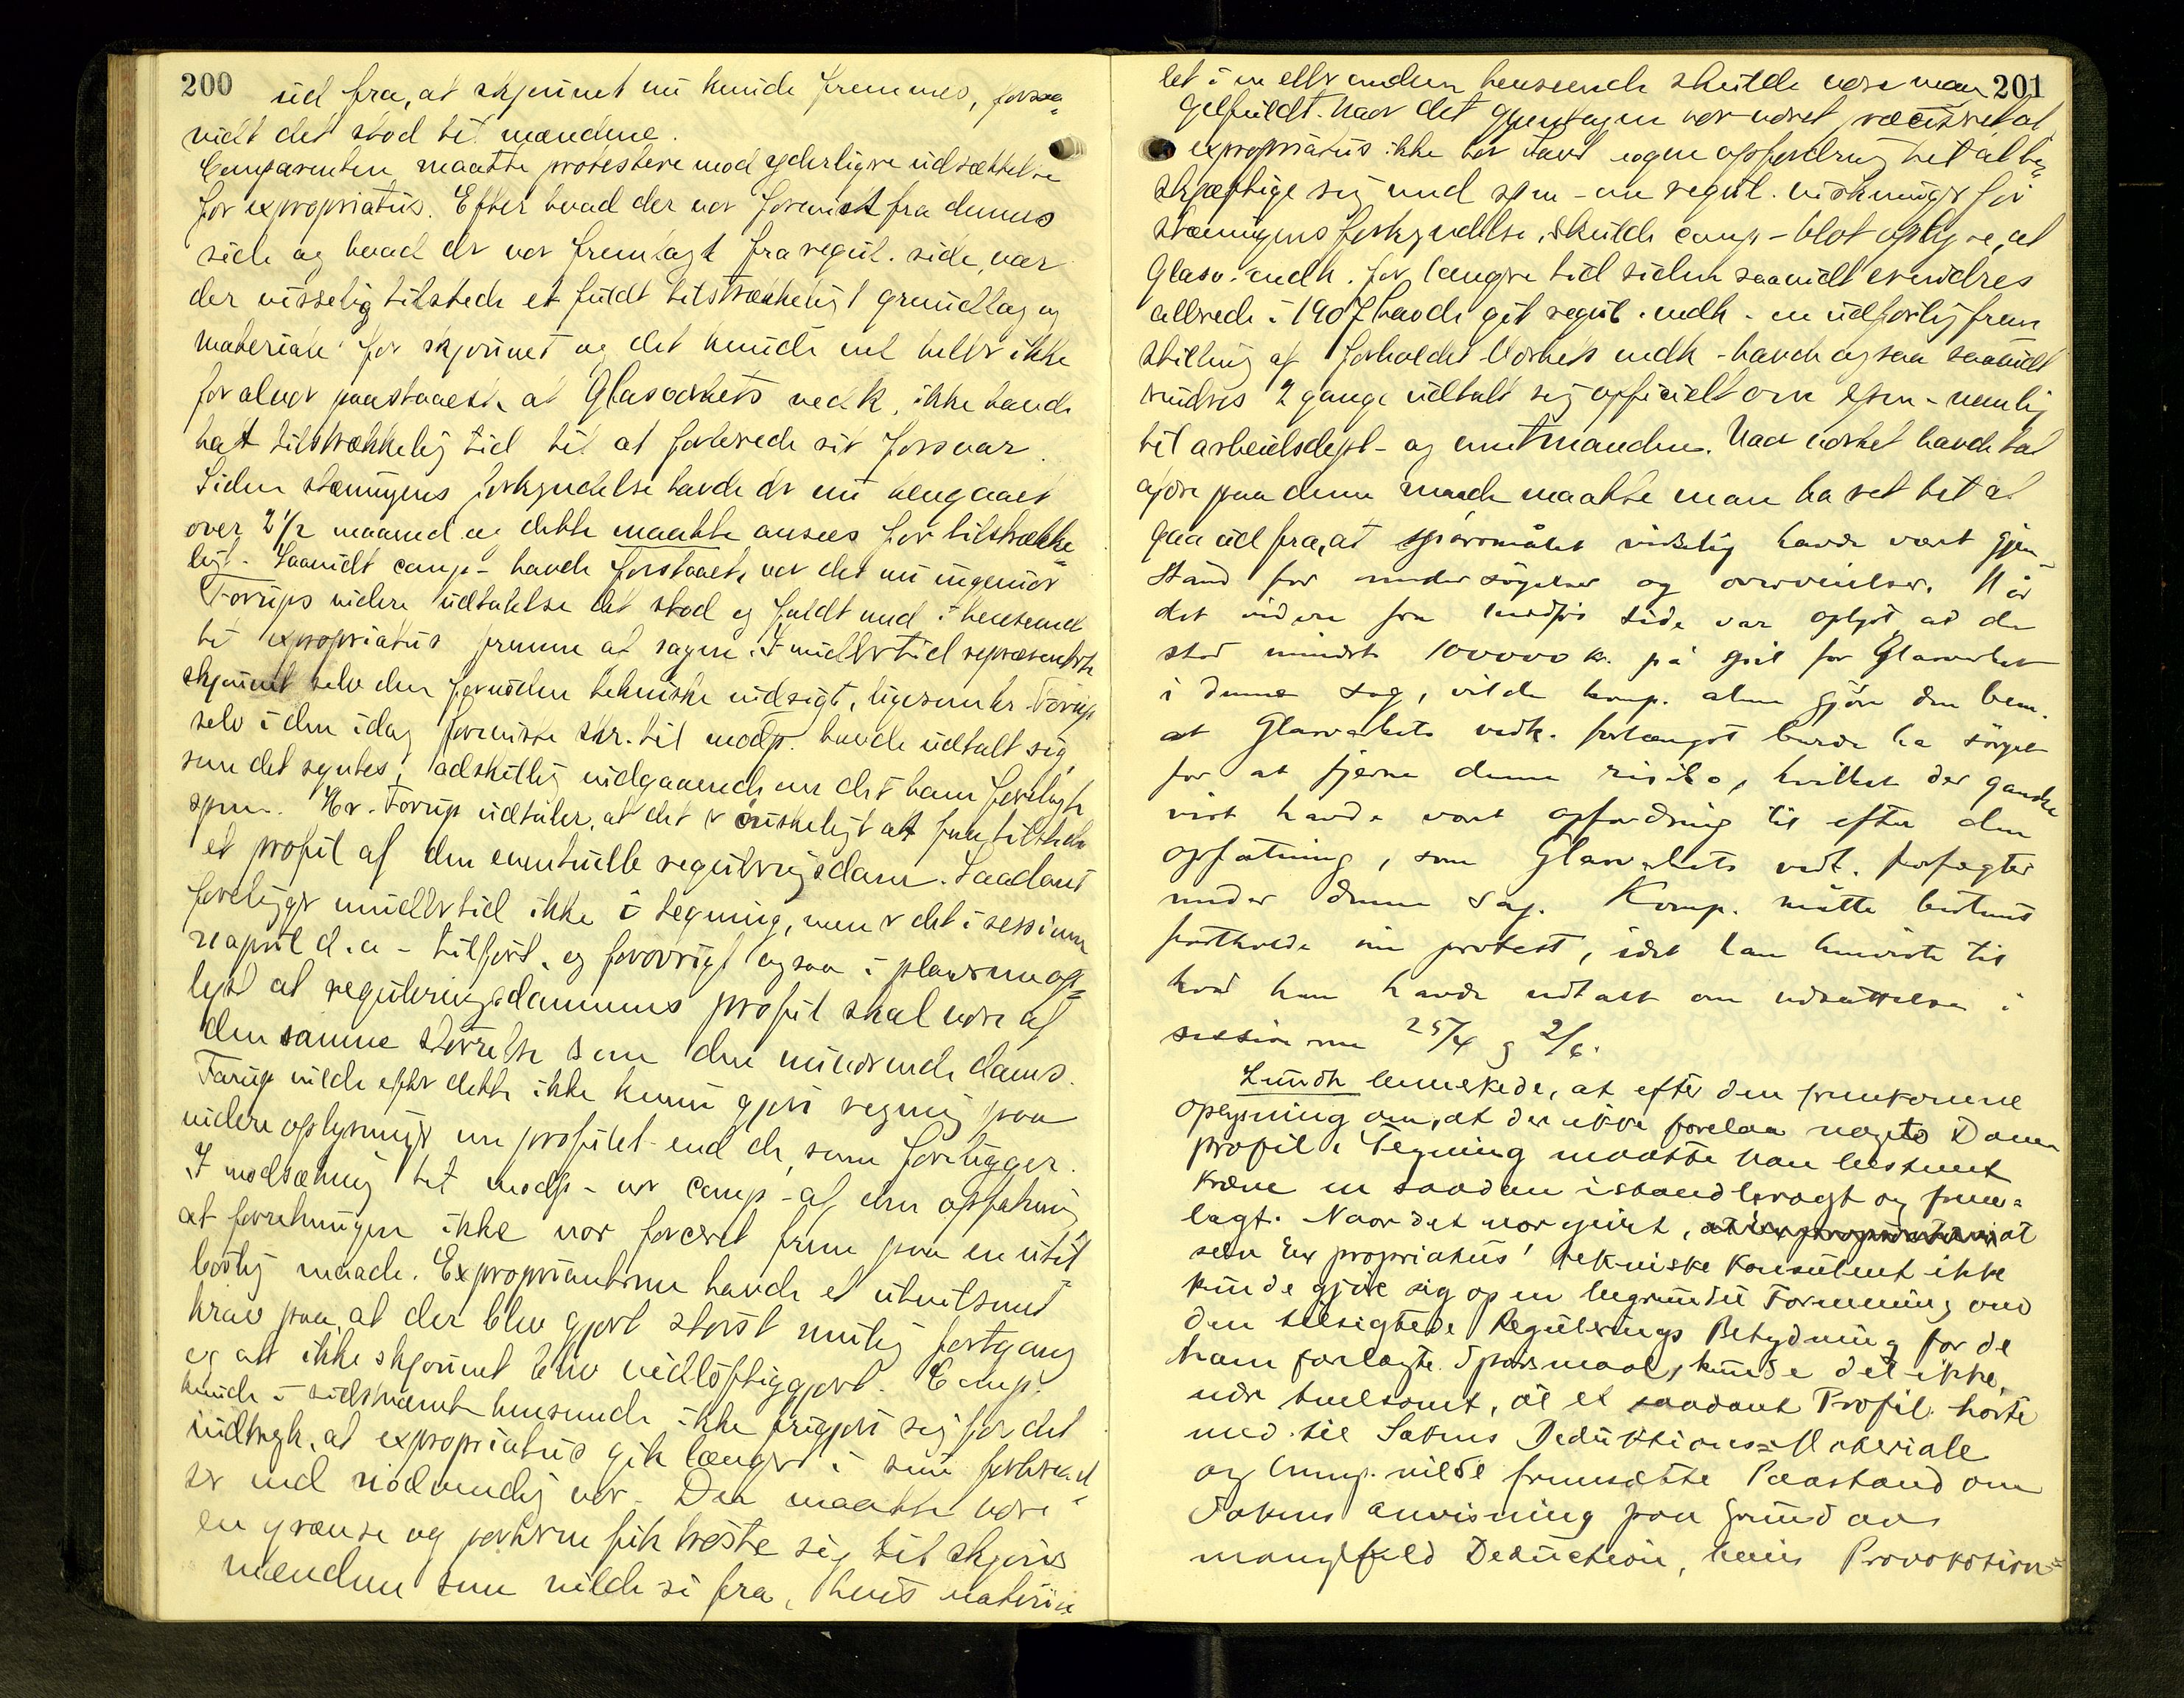 200
ud fra, at skjønnet nu kunde fremmes, forsaa-
vidt det stod til mændene.
Comparenten maatte protestere mod yderligere udsættelse
for expropriatus. Efter hvad der var forevist fra dennes
side og hvad der var fremlagt fra regul. side, var
der visselig tilstede et fuldt tilstrækkeligt grundlag og
materiale for skjønnet og det kunde vel heller ikke
for alvor paastaaes, at Glasverkets vedk. ikke havde
hat tilstrækkelig tid til at forberede sit forsvar.
Siden stævningens forkyndelse havde der nu hengaaet
over 2 1/2 maaned og dette maatte ansees for tilstrække-
ligt. Saavidt comp. havde forstaaet, var det nu ingeniør
Torups videre udtalelse det stod og faldt med i henseende
til expropriatus fremme af sagen. Imidlertid repræsenterte
skjønnet selv den fornødne tekniske indsigt, ligesom hr. Torup
selv i den idag foreviste skr. til modp. havde udtalt sig,
som det syntes, adskillig indgaaende om det ham forelagte
spm. Hr. Torup udtaler, at det er ønskeligt at faa tilstede
et profil af den eventuelle reguleringsdam. Saadant
foreligger imidlertid ikke i tegning, men er det i sessionen
25 april d.a. tilført, og forøvrigt ogsaa i planerne op-
lyst at reguleringsdammens profil skal være af
den samme størrelse som den nuværende dams.
Torup vilde efter dette ikke kunne gjøre regning paa
videre oplysninger om profilet end de, som foreligger.
I modsætning til modp. var comp. af den opfatning
at forretningen ikke var forceret frem paa en util-
børlig maade. Expropriantene havde et utvilsomt
krav paa, at der blev gjort størst mulig fortgang
og at ikke skjønnet blev vidløftiggjort. Comp.
kunde i sidstnævnte henseende ikke frigjøre sig for det
indtryk, at expropriatus gik længer i sine forberedel-
ser end nødvendig var. Der maatte være
en grænse og parterne fik trøste sig til skjøns
mændene som vilde si fra, hvis materia-
201
let i en eller anden henseende skulde være man
gelfuldt. Naar det gjentagen var været protesteret at
expropriatus ikke har havt nogen opfordring til at be-
skjæftige sig med spm. om regul. virkninger før
stævningens forkyndelse, skulde comp. blot oplyse, at
Glasv. vedk. for længre tid siden saavidt erindres
allerede i 1907 havde git regul. vedk. en udførlig frem
stilling af forholdet. Verkets vedk. havde ogsaa saavidt
erindres 2 gange udtalt sig officielt om spm. nemlig
til arbeidsdept. og amtmanden. Naar verket havde tat
affære paa denne maade maatte man ha ret til at
gaa ud fra, at spørsmålet virkelig havde vært gjen-
stand for undersøgelser og overveielser. Når
det videre fra modp's side var oplyst at der
stod mindst 100000 kr. på spil for Glasverket
i denne sag, vilde komp. alene gjøre den bem.
at Glasverkets vedk. forlængst burde ha sørget
for at fjerne denne risiko, hvilket der ganske
vist havde vært opfordring til efter den
opfatning, som Glasverkets vedk. forfægter
under denne sag. Komp. måtte bestemt
fastholde sin protest, idet han henviste til
hvad han havde udtalt om udsættelse i
sessionerne 25/4 og 2/6.
Lundh bemerkede, at efter den fremkomne
oplysning om, at der ikke forelaa nogeto Dam
profil i Tegning maatte han bestemt
kræve en saadan istandbragt og frem-
lagt. Naar det var givet, at
selv Expropriatus' tekniske Konsulent ikke
kunde gjøre sig op en begrundet Formening om
den tilsigtede Regulerings Betydning for de
ham forlagte Spørsmaal, kunde det ikke
være tvilsomt, at et saadant Profil hørte
med til Sakens Deduktions-Materiale
og Comp. vilde fremsætte Paastand om
Sakens Avvisning paa Grund av
mangelfuld Deduction, hvis Provokation-